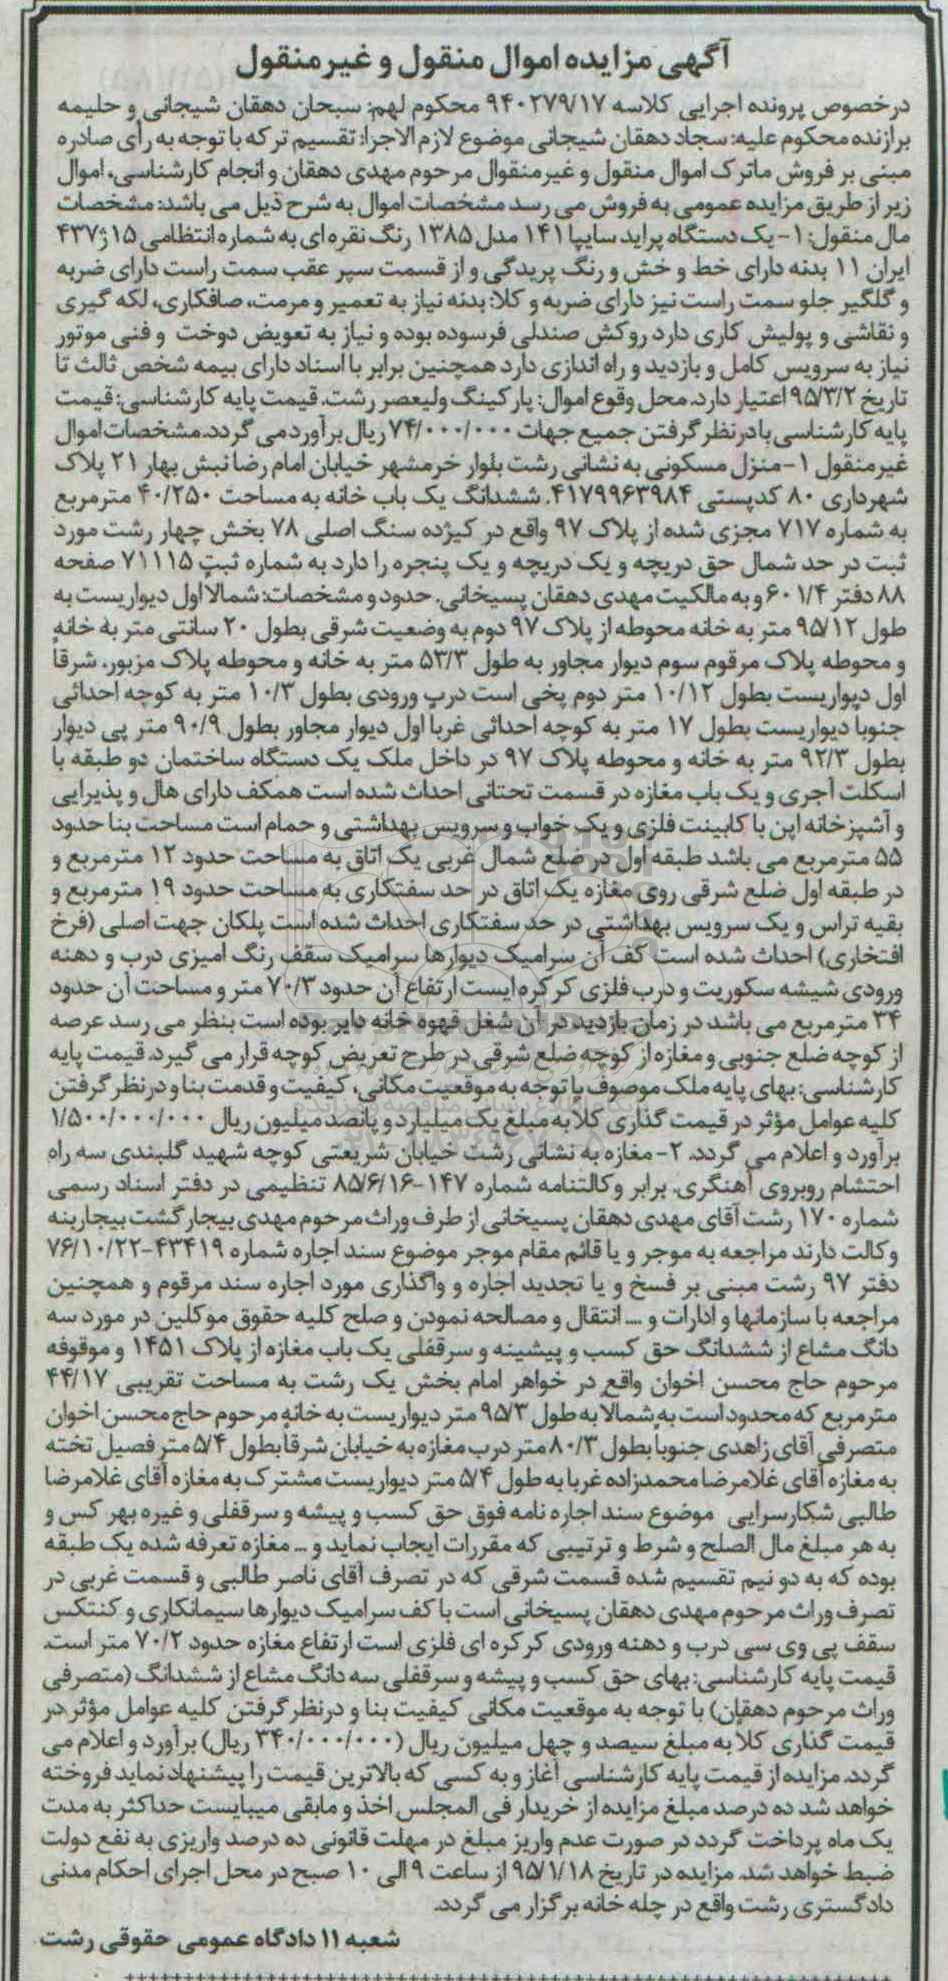 آگهی مزایده اموال منقول و غیرمنقول
درخصوص پرونده اجرایی کلاسه ۹۴۰۲۷۹/۱۷ محکوم لهم: سبحان دهقان شیجانی و حلیمه
برازنده محکوم علیه: سجاد دهقان شیجانی موضوع لازم الاجرا: تقسیم ترکه با توجه به رأی صادره
مبنی بر فروش ماترک اموال منقول و غیرمنقوال مرحوم مهدی دهقان و انجام کارشناسی، اموال
زیر از طریق مزایده عمومی به فروش می رسد مشخصات اموال به شرح ذیل می باشد: مشخصات
مال منقول: ۱- یک دستگاه پراید سایپا ۱۴۱ مدل ۱۳۸۵ رنگ نقره ای به شماره انتظامی ۱۵ ژ ۴۳۷
ایران ۱۱ بدنه دارای خط و خش و رنگ پریدگی و از قسمت سپر عقب سمت راست دارای ضربه
و گلگیر جلو سمت راست نیز دارای ضربه و کلا: بدنه نیاز به تعمیر و مرمت، صافکاری، لکه گیری
و نقاشی و پولیش کاری دارد روکش صندلی فرسوده بوده و نیاز به تعویض دوخت و فنی موتور
نیاز به سرویس کامل و بازدید و راه اندازی دارد همچنین برابر با اسناد دارای بیمه شخص ثالث تا
تاریخ ۹۵/۳/۲ اعتبار دارد. محل وقوع اموال: پارکینگ ولیعصر رشت. قیمت پایه کارشناسی: قیمت
پایه کارشناسی با درنظر گرفتن جمیع جهات ۷۴/۰۰۰/۰۰۰ ریال برآورد می گردد. مشخصات اموال
غیرمنقول ۱- منزل مسکونی به نشانی رشت بلوار خرمشهر خیابان امام رضا نبش بهار ۲۱ پلاک
شهرداری ۸۰ کدپستی ۴۱۷۹۹۶۳۹۸۴. ششدانگ یک باب خانه به مساحت ۴۰/۲۵۰ مترمربع
به شماره ۷۱۷ مجزی شده از پلاک ۹۷ واقع در کیژده سنگ اصلی ۷۸ بخش چهار رشت مورد
ثبت در حد شمال حق دریچه و یک دریچه و یک پنجره را دارد به شماره ثبت ۷۱۱۱۵ صفحه
۸۸ دفتر ۶۰۱/۴ و به مالکیت مهدی دهقان پسیخانی. حدود و مشخصات: شمالا اول دیواریست به
طول ۹۵/۱۲ متر به خانه محوطه از پلاک ۹۷ دوم به وضعیت شرقی بطول ۲۰ سانتی متر به خانه
و محوطه پلاک مرقوم سوم دیوار مجاور به طول ۵۳/۳ متر به خانه و محوطه پلاک مزبور. شرقا
اول دیواریست بطول ۱۰/۱۲ متر دوم پخی است درب ورودی بطول ۱۰/۳ متر به کوچه احداثی
جنوبا دیواریست بطول ۱۷ متر به کوچه احداثی غربا اول دیوار مجاور بطول ۹۰/۹ متر پی دیوار
بطول ۹۲/۳ متر به خانه و محوطه پلاک ۹۷ در داخل ملک یک دستگاه ساختمان دو طبقه با
اسکلت آجری و یک باب مغازه در قسمت تحتانی احداث شده است همکف دارای هال و پذیرایی
و آشپزخانه اپن با کابینت فلزی و یک خواب و سرویس بهداشتی و حمام است مساحت بنا حدود
۵۵ مترمربع می باشد طبقه اول در ضلع شمال غربی یک اتاق به مساحت حدود ۱۲ مترمربع و
در طبقه اول ضلع شرقی روی مغازه یک اتاق در حد سفتکاری به مساحت حدود ۱۹ مترمربع و
بقیه تراس و یک سرویس بهداشتی در حد سفتکاری احداث شده است پلکان جهت اصلی (فرخ
افتخاری) احداث شده است کف آن سرامیک دیوارها سرامیک سقف رنگ امیزی درب و دهنه
ورودی شیشه سکوریت و درب فلزی کرکره ایست ارتفاع آن حدود ۷۰/۳ متر و مساحت آن حدود
۳۴ مترمربع می باشد در زمان بازدید در آن شغل قهوه خانه دایر بوده است بنظر می رسد عرصه
از کوچه ضلع جنوبی و مغازه از کوچه ضلع شرقی در طرح تعریض کوچه قرار می گیرد. قیمت پایه
کارشناسی: بهای پایه ملک موصوف با توجه به موقعیت مکانی، کیفیت و قدمت بنا و درنظر گرفتن
کلیه عوامل مؤثر در قیمت گذاری کلاً به مبلغ یک میلیارد و پانصد میلیون ریال ۱/۵۰۰/۰۰۰/۰۰۰
برآورد و اعلام می گردد. ۲- مغازه به نشانی رشت خیابان شریعتی کوچه شهید گلبندی سه راه
احتشام روبروی آهنگری. برابر وکالتنامه شماره ۱۴۷-۸۵/۶/۱۶ تنظیمی در دفتر اسناد رسمی
شماره ۱۷۰ رشت آقای مهدی دهقان پسیخانی از طرف وراث مرحوم مهدی بیجارگشت بیجاربنه
وکالت دارند مراجعه به موجر و یا قائم مقام موجر موضوع سند اجاره شماره ۴۳۴۱۹-۷۶/۱۰/۲۲
دفتر ۹۷ رشت مبنی بر فسخ و یا تجدید اجاره و واگذاری مورد اجاره سند مرقوم و همچنین
مراجعه با سازمانها و ادارات و ... انتقال و مصالحه نمودن و صلح کلیه حقوق موکلین در مورد سه
دانگ مشاع از ششدانگ حق کسب و پیشینه و سرقفلی یک باب مغازه از پلاک ۱۴۵۱ و موقوفه
مرحوم حاج محسن اخوان واقع در خواهر امام بخش یک رشت به مساحت تقریبی ۴۴/۱۷
مترمربع که محدود است به شمالا به طول ۹۵/۳ متر دیواریست به خانه مرحوم حاج محسن اخوان
متصرفی آقای زاهدی جنوباً بطول ۸۰/۳ متر درب مغازه به خیابان شرقا بطول ۵/۴ متر فصیل تخته
به مغازه آقای غلامرضا محمدزاده غربا به طول ۵/۴ متر دیواریست مشترک به مغازه آقای غلامرضا
طالبی شکارسرایی موضوع سند اجاره نامه فوق حق کسب و پیشه و سرقفلی و غیره بهر کس و
به هر مبلغ مال الصلح و شرط و ترتیبی که مقررات ایجاب نماید و ... مغازه تعرفه شده یک طبقه
بوده که به دو نیم تقسیم شده قسمت شرقی که در تصرف آقای ناصر طالبی و قسمت غربی در
تصرف وراث مرحوم مهدی دهقان پسیخانی است با کف سرامیک دیوارها سیمانکاری و کنتکس
سقف پی وی سی درب و دهنه ورودی کرکره ای فلزی است ارتفاع مغازه حدود ۷۰/۲ متر است.
قیمت پایه کارشناسی: بهای حق کسب و پیشه و سرقفلی سه دانگ مشاع از ششدانگ (متصرفی
وراث مرحوم دهقان) با توجه به موقعیت مکانی کیفیت بنا و درنظر گرفتن کلیه عوامل مؤثر در
قیمت گذاری کلاً به مبلغ سیصد و چهل میلیون ریال (۳۴۰/۰۰۰/۰۰۰ ریال) برآورد و اعلام می
گردد. مزایده از قیمت پایه کارشناسی آغاز و به کسی که بالاترین قیمت را پیشنهاد نماید فروخته
خواهد شد ده درصد مبلغ مزایده از خریدار فی المجلس اخذ و مابقی میبایست حداکثر به مدت
یک ماه پرداخت گردد در صورت عدم واریز مبلغ در مهلت قانونی ده درصد واریزی به نفع دولت
ضبط خواهد شد. مزایده در تاریخ ۹۵/۱/۱۸ از ساعت ۹ الی ۱۰ صبح در محل اجرای احکام مدنی
دادگستری رشت واقع در چله خانه برگزار می گردد.
شعبه ۱۱ دادگاه عمومی حقوقی رشت